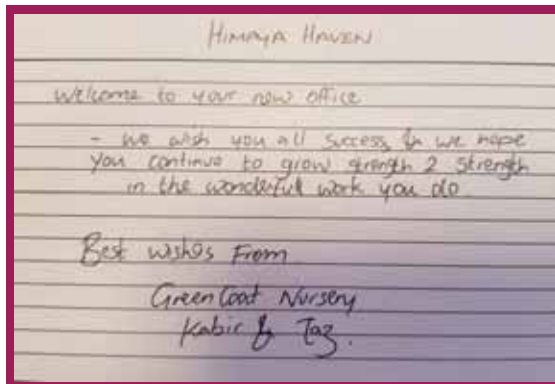 HIMAYA HAVEN
Welcome to your new office
- we wish you all success & we hope
you continue to grow strength 2 strength
in the wonderful work you do.
Best wishes From
GreenCoat Nursery
Kabir & Taz.